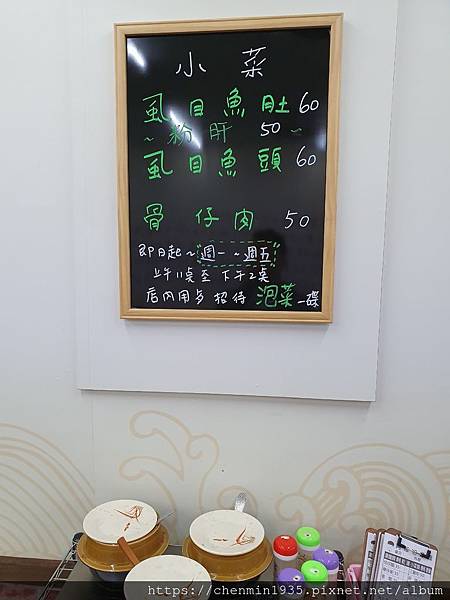 小菜
虱目魚肚 60
~ 粉肝 50 ~
虱目魚頭 60
骨仔肉 50
即日起~週一~週五
上午11桌至下午2桌
店內用歺招待泡菜一碟
https://chenmin1935.pixnet.net/album